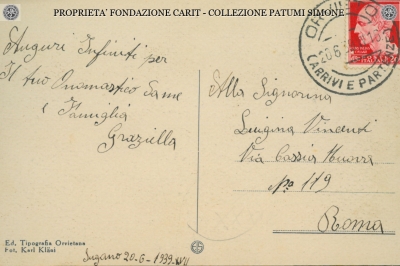 PROPRIETA' FONDAZIONE CARIT - COLLEZIONE PATUMI SIMONE
Auguri Infiniti per
Il tuo Onomastico Fame
e Famiglia
Graziella
Ed. Tipografia Orvietana
Fot. Karl Kläsi
Sugano 20-6-1939-XVII
ORVI
20 6
(ARRIVI E PARTENZE)
Alla Signorina
Luigina Vincenti
Via Cassia Nuova
No 119
Roma